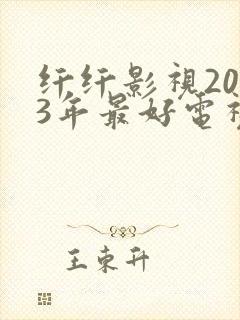 纤纤影視20
3年最好電视
王东升